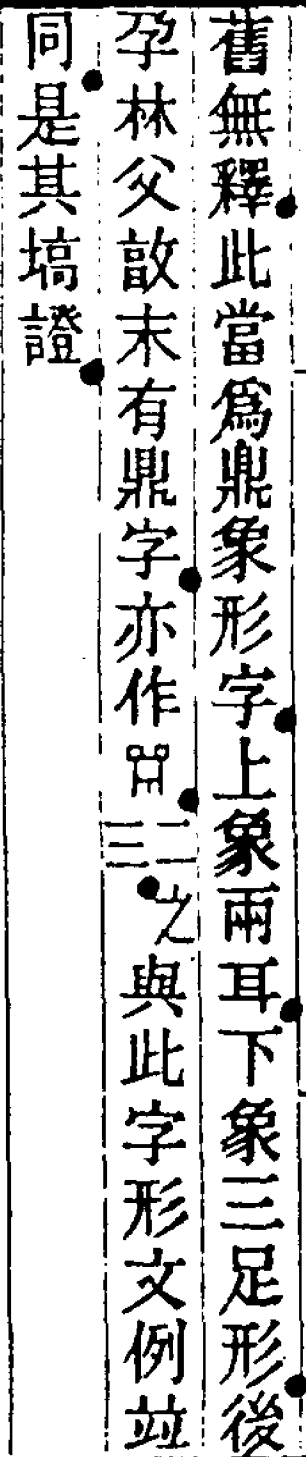 舊無釋此當爲鼎象形字上象兩耳下象三足形後
孕林父敦末有鼎字亦作二之三與此字形文例竝
同是其塙證